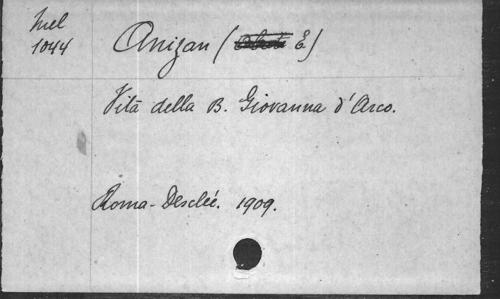 Mel
1044
Anizan ( E.)
Vita della B. Giovanna d'Arco.
Roma - Desclée. 1909.